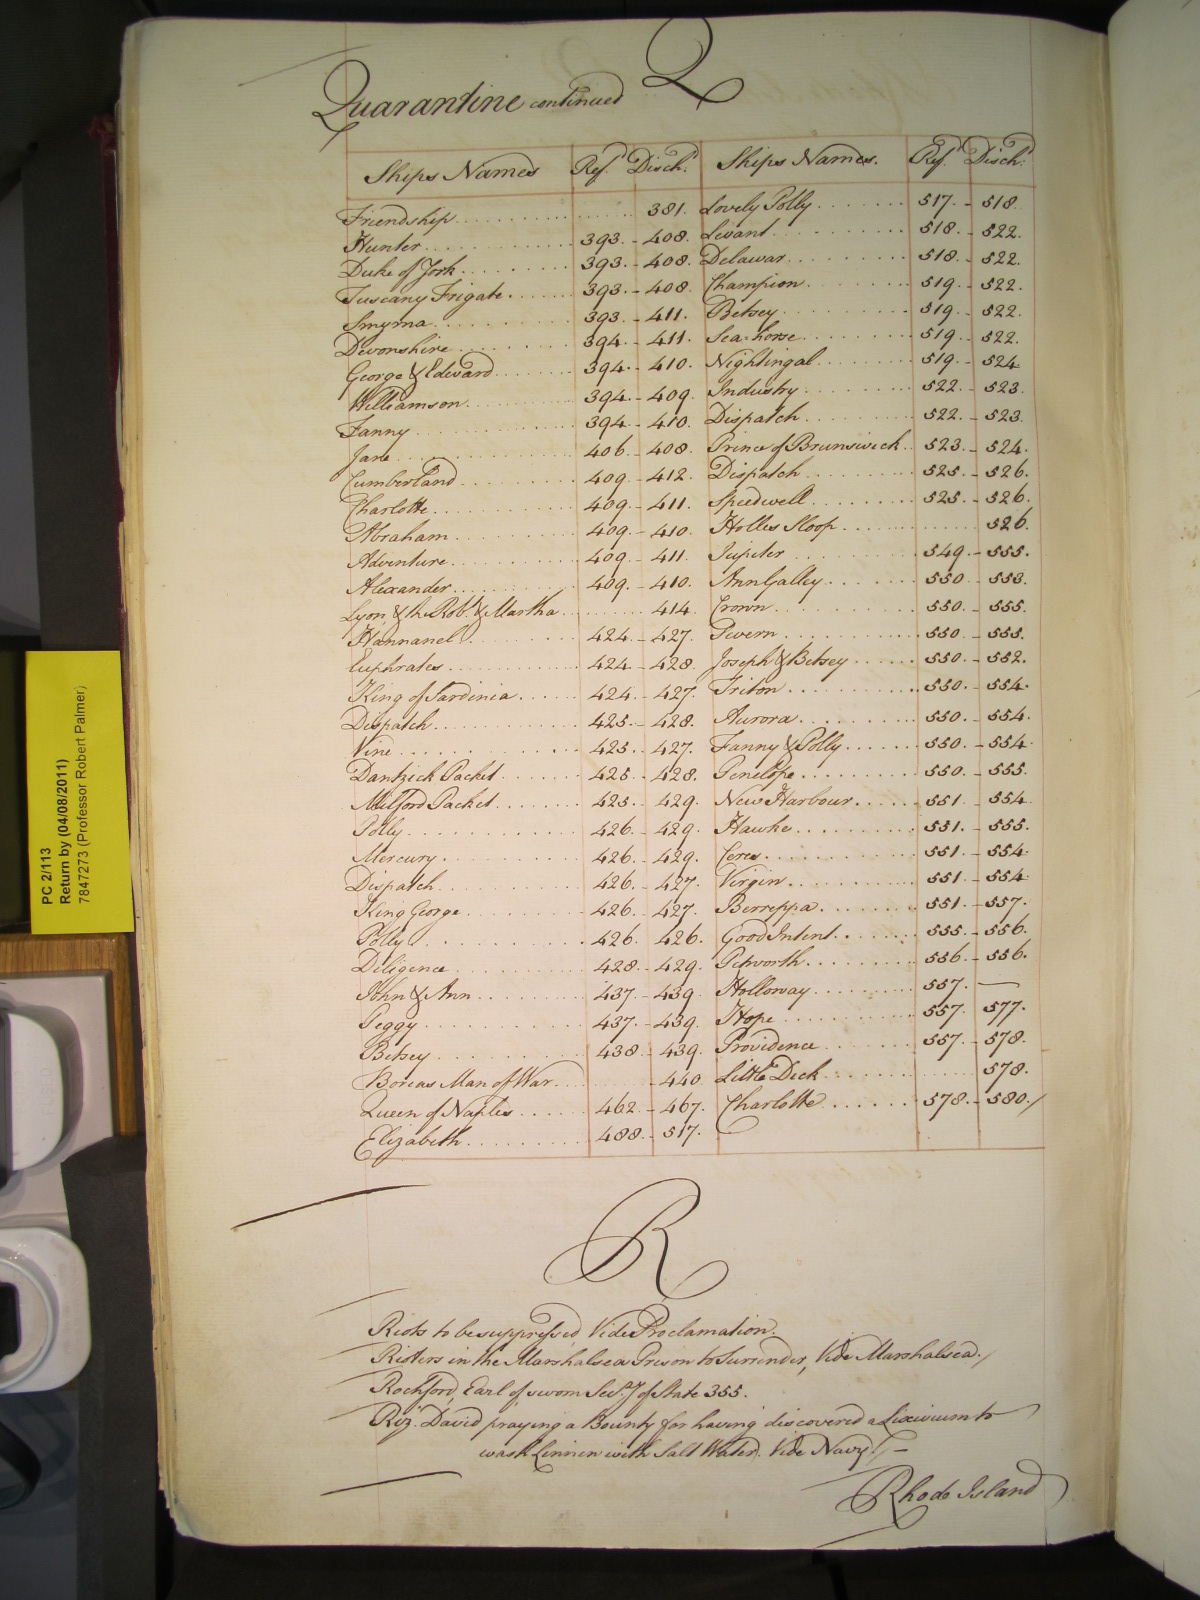 Q
Quarantine continued
Ships Names Ref.d Disch.d Ships Names. Ref.d Disch.d
Friendship 381. Lovely Polly 517. - 518.
Hunter 393. - 408. Levant 518. - 522.
Duke of York 393. - 408. Delawar 518. - 522.
Tuscany Frigate 393. - 408. Champion 519. - 522.
Smyrna 393. - 411. Betsey 519. - 522.
Devonshire 394. - 411. Sea-horse 519. - 522.
George & Edward 394. - 410. Nightingal 519. - 524
Williamson 394. - 409. Industry 522. - 523.
Fanny 394. - 410. Dispatch 522. - 523.
Jane 406. - 408. Prince of Brunswick 523. - 524.
Cumberland 409. - 412. Dispatch 525. - 526.
Charlotte 409. - 411. Speedwell 525. - 526.
Abraham 409. - 410. Holles Sloop 526.
Adventure 409. - 411. Jupiter 549. - 555.
Alexander 409. - 410. Ann Galley 550. - 553.
Lyon, & the Rob.t & Martha 414. Crown 550. - 555.
Hannanel 424. - 427. Severn 550. - 555.
Euphrates 424. - 428. Joseph & Betsey 550. - 552.
King of Sardinia 424. - 427. Triton 550. - 554.
Dispatch 425. - 428. Aurora 550. - 554.
Vine 425. - 427. Fanny & Polly 550. - 554.
Dantzick Packet 425. - 428. Penelope 550. - 555.
Milford Packet 425. - 429. New Harbour 551. - 554
Polly 426. - 429. Hawke 551. - 555.
Mercury 426. - 429. Ceres 551. - 554.
Dispatch 426. - 427. Virgin 551. - 554
King George 426. - 427. Berreppa 551. - 557.
Polly 426. - 426. Good Intent 555. - 556.
Diligence 428. - 429. Petworth 556. - 556.
John & Ann 437. - 439. Holloway 557. —
Peggy 437. - 439. Hope 557. 577.
Betsey 438. - 439. Providence 557. - 578.
Boreas Man of War 440. Little Dick 578.
Queen of Naples 462. - 467. Charlotte 578. - 580. /
Elizabeth 488. - 517.
R
Riots to be suppressed, Vide Proclamation.
Rioters in the Marshalsea Prison to Surrender, Vide Marshalsea. /
Rochford, Earl of sworn Sec.ry of State 355.
Riz. David praying a Bounty for having discovered a Lixivium to
wash Linnen with Salt Water. Vide Navy. / —
Rhode Island
PC 2/113
Return by (04/08/2011)
7847273 (Professor Robert Palmer)